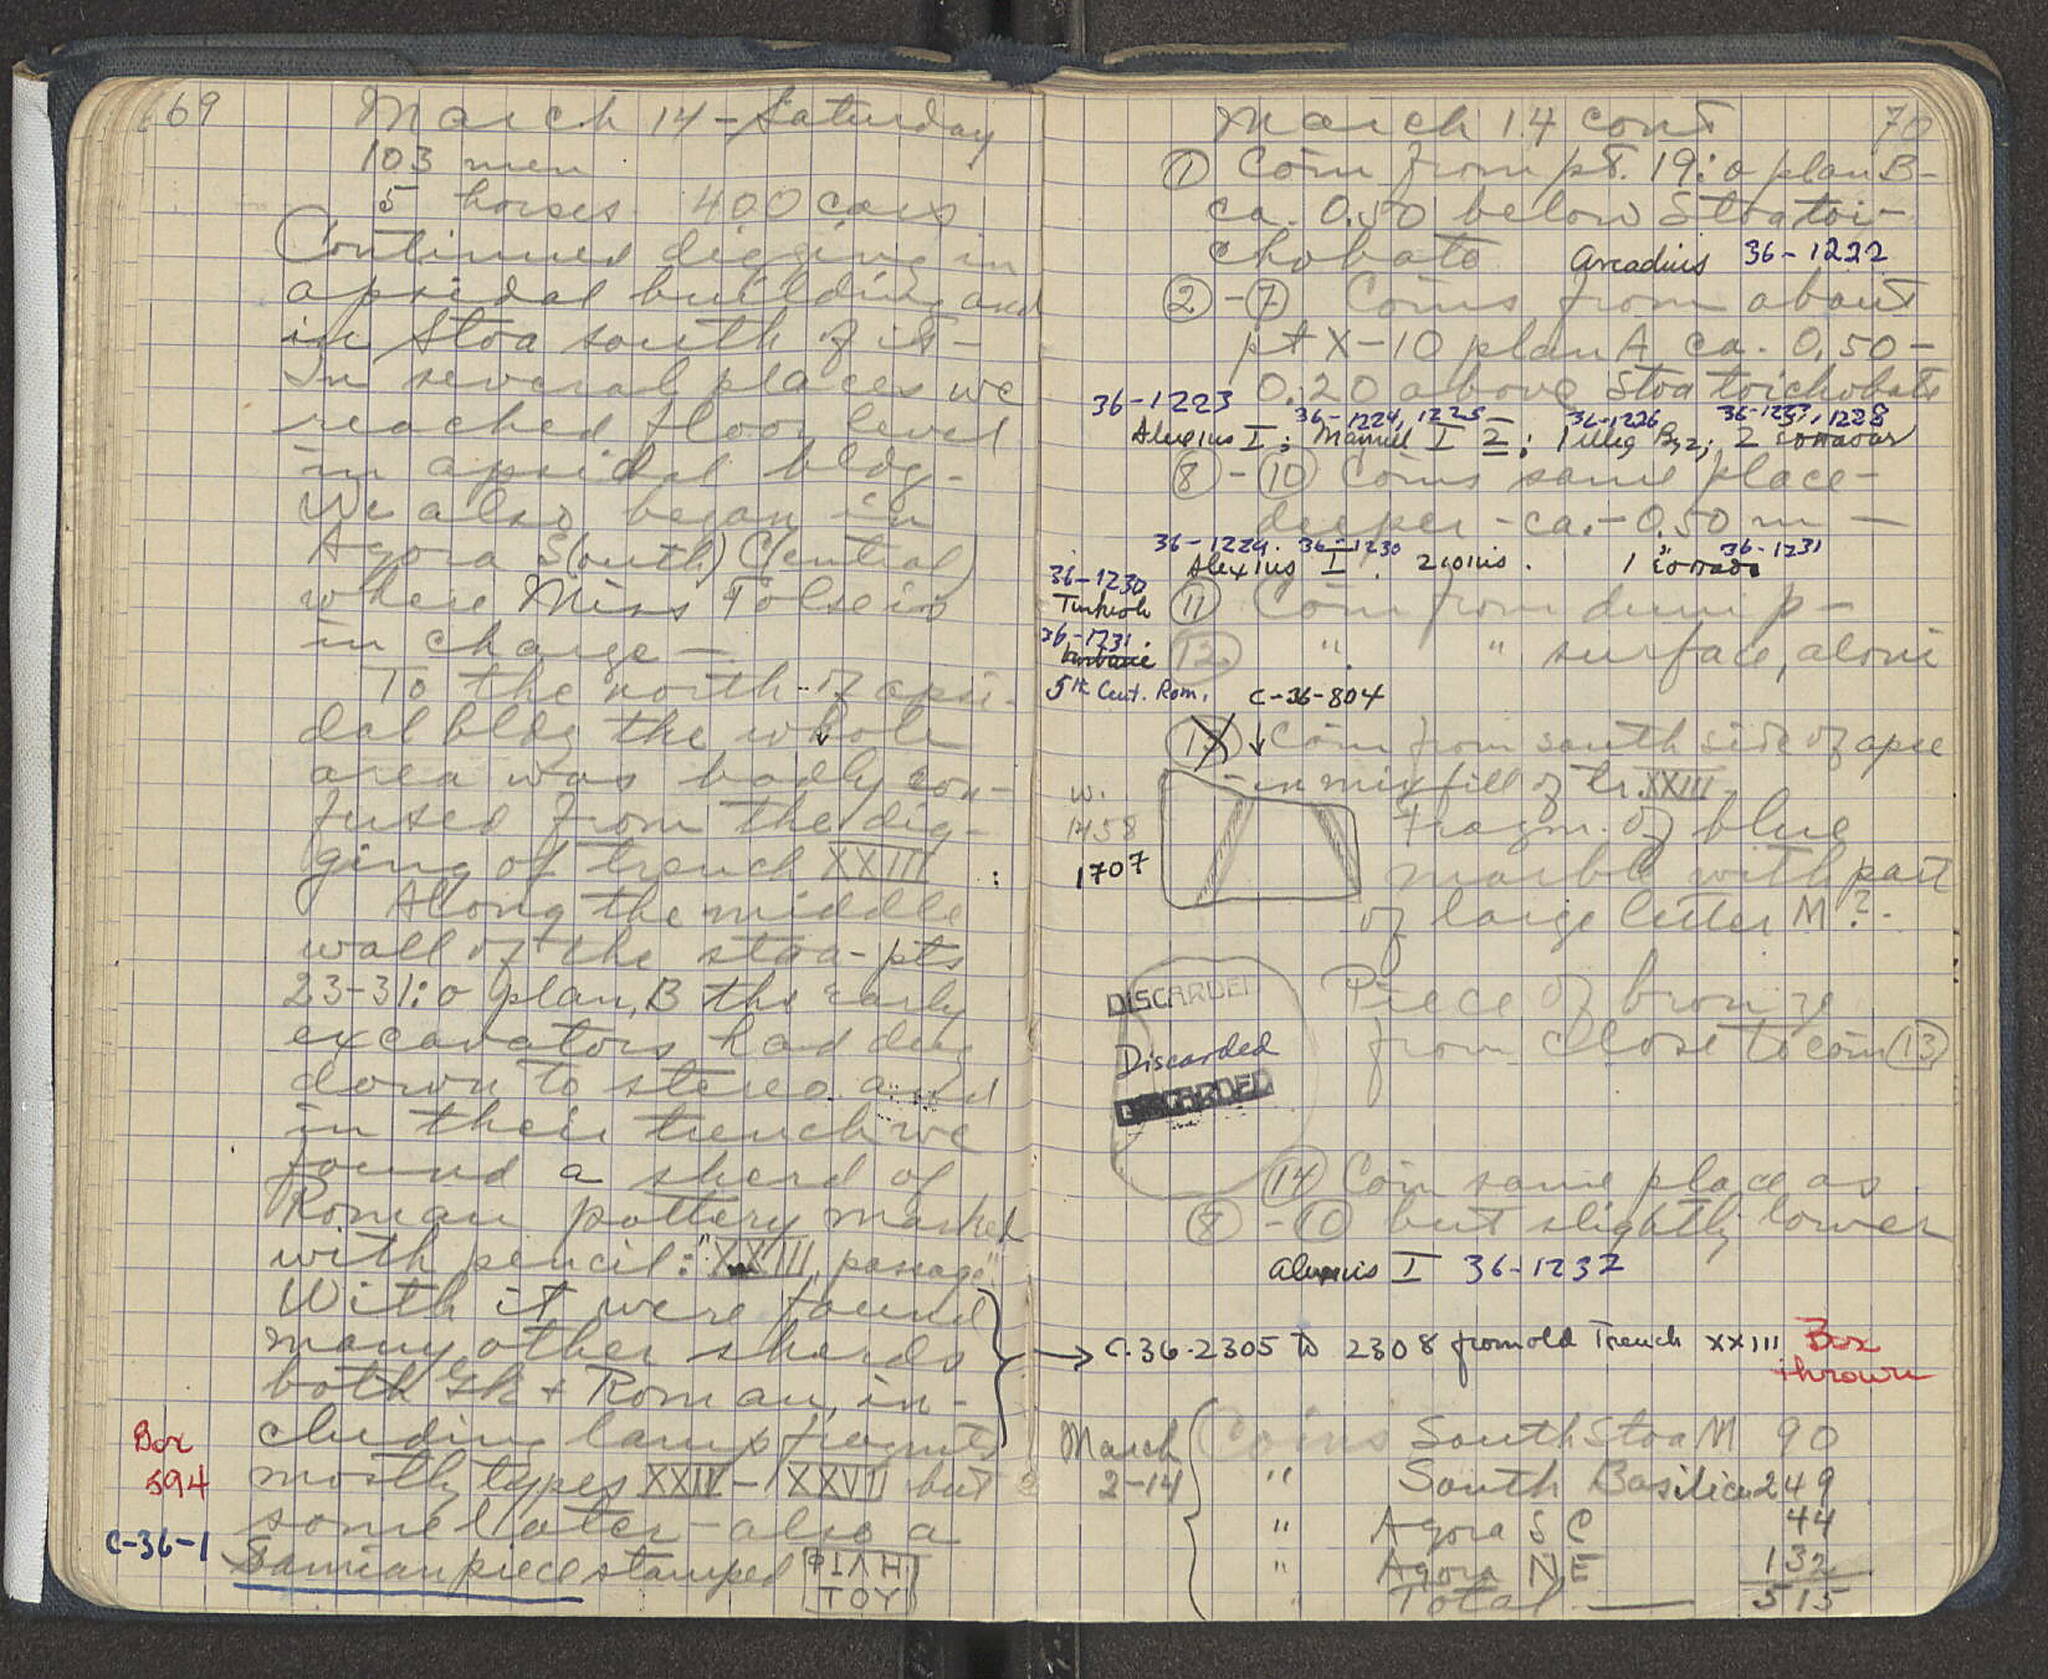 69
March 14 - Saturday
103 men
5 horses 400 cars
Continued digging in
apsidal building and
in Stoa south of it -
In several places we
reached floor level
in apsidal bldg -
We also began in
Agora S(outh) C(entral)
where Miss
in charge -
To the north of apsi-
dal bldg the whole
area was badly con-
fused from the dig-
ging of trench XXIII
Along the middle
wall of the stoa - pts
23-31:0 plan B the early
excavators had dug
down to stereo and
in their trench we
found a sherd of
Roman pottery marked
with pencil: "XXIII passage"
With it were found
many other sherds
both Gk + Roman, in-
cluding lamp fragmts
Box
594
mostly types XXIV - XXVII but
some later - also a
C-36-1
Samian piece stamped ΦΙΛΗ
ΤΟΥ
March 14 cont 70
① Coin from pt. 19:0 plan B -
ca. 0.50 below Stoa toi-
chobate Arcadius 36-1222
② - ⑦ Coins from about
pt X-10 plan A ca. 0.50 -
0.20 above Stoa toichobate
36-1223 36-1224, 1225 36-1226 1228
Alexius I; Manuel I 2; 1 illeg Byz; 2
⑧ - ⑩ Coins same place -
deeper - ca. - 0.50 m -
36-1229. 36-1230 36-1231
Alexius I. 1
36-1230
⑪ Coin from dump -
36-1231.
⑫ " " surface,
5th Cent. Rom. C-36-804
↓ Coin from south side of apse
in mix fill of tr. XXIII -
W.
1458
1707
Fragm. of blue
marble with part
of large letter M?
DISCARDED
Discarded
DISCARDED
Piece of bronze
from close to coin ⑬
⑭ Coin same place as
⑧ - ⑩ but slightly lower
Alexius I 36-1232
→ C-36-2305 to 2308 from old Trench XXIII Box
thrown
March
2-14
Coins South Stoa M 90
" South Basilica 249
" Agora S C 44
" Agora NE 132
Total — 515